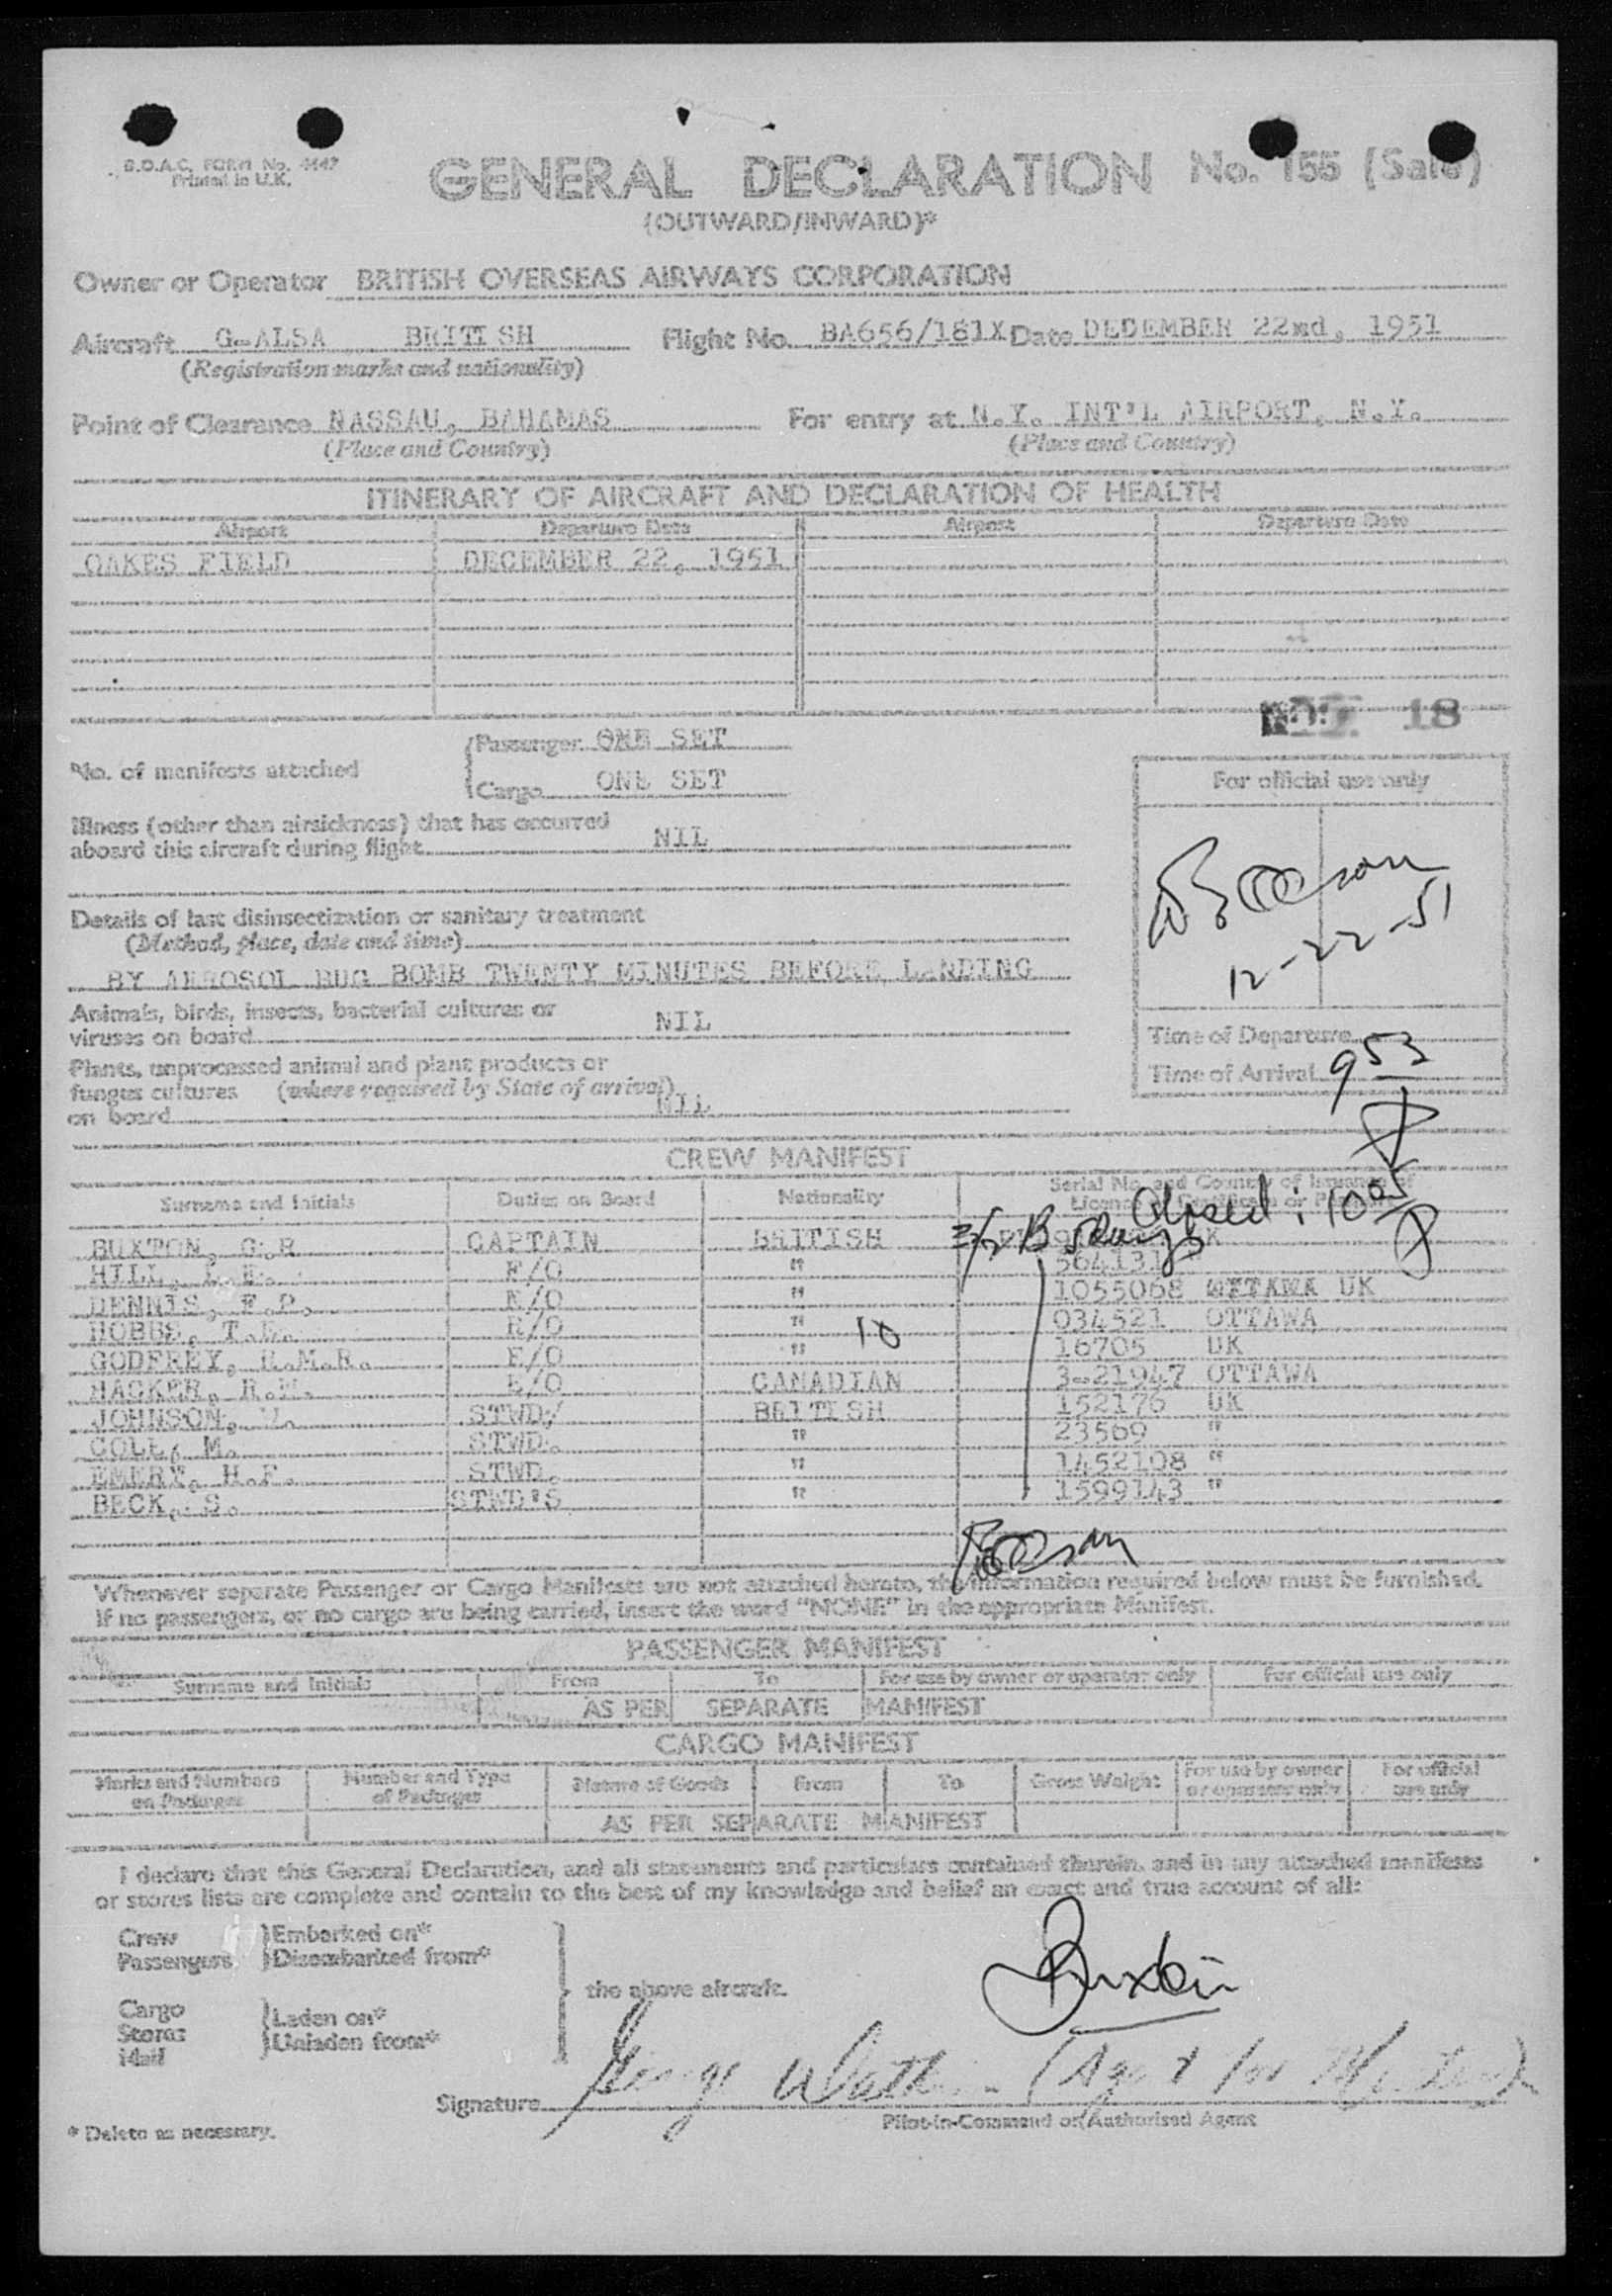 B.O.A.C. FORM No. 4447
Printed in U.K.
GENERAL DECLARATION No. 155 (Sale)
(OUTWARD/INWARD)*
Owner or Operator BRITISH OVERSEAS AIRWAYS CORPORATION
Aircraft G-ALSA BRITISH Flight No. BA656/181X Date DEDEMBER 22nd, 1951
(Registration marks and nationality)
Point of Clearance NASSAU, BAHAMAS For entry at N.Y. INT'L AIRPORT, N.Y.
(Place and Country) (Place and Country)
ITINERARY OF AIRCRAFT AND DECLARATION OF HEALTH
Airport Departure Date Airport Departure Date
OAKES FIELD DECEMBER 22, 1951
18
No. of manifests attached
Passenger ONE SET
Cargo ONE SET
For official use only
Illness (other than airsickness) that has occurred
aboard this aircraft during flight NIL
Details of last disinsectization or sanitary treatment
(Method, place, date and time)
BY AEROSOL BUG BOMB TWENTY MINUTES BEFORE LANDING
12-22-51
Animals, birds, insects, bacterial cultures or
viruses on board NIL
Time of Departure
Time of Arrival 953
Plants, unprocessed animal and plant products or
fungus cultures (where required by State of arrival)
on board NIL
CREW MANIFEST
Surname and Initials Duties on Board Nationality Serial No. and Country of Issuance of
License or Certificate or
BUXTON, G.R CAPTAIN BRITISH
HILL, F/O " 564131
DENNIS, F.P. N/O " 1055068 OTTAWA UK
HOBBS, T.E. R/O " 034521 OTTAWA
10
GODFREY, H.M.R. E/O " 16705 UK
HACKER, R.H. E/O CANADIAN 3-21947 OTTAWA
JOHNSON, STWD/ BRITISH 152176 UK
COLE, M. STWD. " 23569 "
EMERY, H.F. STWD. " 1452108 "
BECK, S. STWD'S " 1599143 "
Whenever separate Passenger or Cargo Manifests are not attached hereto, the information required below must be furnished.
If no passengers, or no cargo are being carried, insert the word "NONE" in the appropriate Manifest.
PASSENGER MANIFEST
Surname and Initials From To For use by owner or operator only For official use only
AS PER SEPARATE MANIFEST
CARGO MANIFEST
Marks and Numbers on Packages Number and Type of Packages Nature of Goods From To Gross Weight For use by owner or operator only For official use only
AS PER SEPARATE MANIFEST
I declare that this General Declaration, and all statements and particulars contained therein, and in any attached manifests
or stores lists are complete and contain to the best of my knowledge and belief an exact and true account of all:
Crew Embarked on*
Passengers Disembarked from*
the above aircraft.
Buxton
Cargo
Stores
Mail
Laden on*
Unladen from*
Signature
Pilot-in-Command or Authorised Agent
* Delete as necessary.